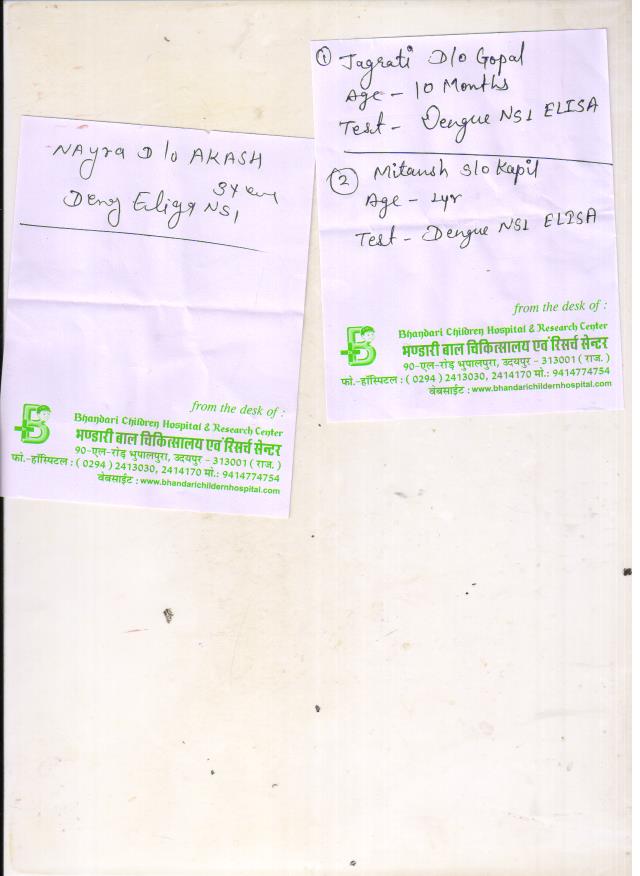 NAyra D/o AKASH
3Year
Deng Eliga NS1
from the desk of :
Bhandari Children Hospital & Research Center
भण्डारी बाल चिकित्सालय एवं रिसर्च सेन्टर
90-एल-रोड़ भुपालपुरा, उदयपुर - 313001 ( राज. )
फो.-हॉस्पिटल : ( 0294 ) 2413030, 2414170 मो.: 9414774754
वेबसाईट : www.bhandarichildernhospital.com
① Jagrati D/o Gopal
Age - 10 Months
Test - Dengue NS1 ELISA
② Mitansh S/o Kapil
Age - 1yr
Test - Dengue NS1 ELISA
from the desk of :
Bhandari Children Hospital & Research Center
भण्डारी बाल चिकित्सालय एवं रिसर्च सेन्टर
90-एल-रोड़ भुपालपुरा, उदयपुर - 313001 ( राज. )
फो.-हॉस्पिटल : ( 0294 ) 2413030, 2414170 मो.: 9414774754
वेबसाईट : www.bhandarichildernhospital.com